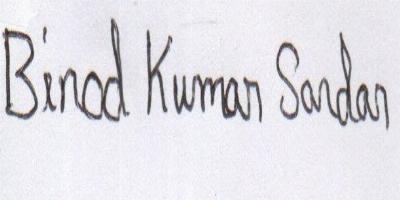 Binod Kumar Sardar